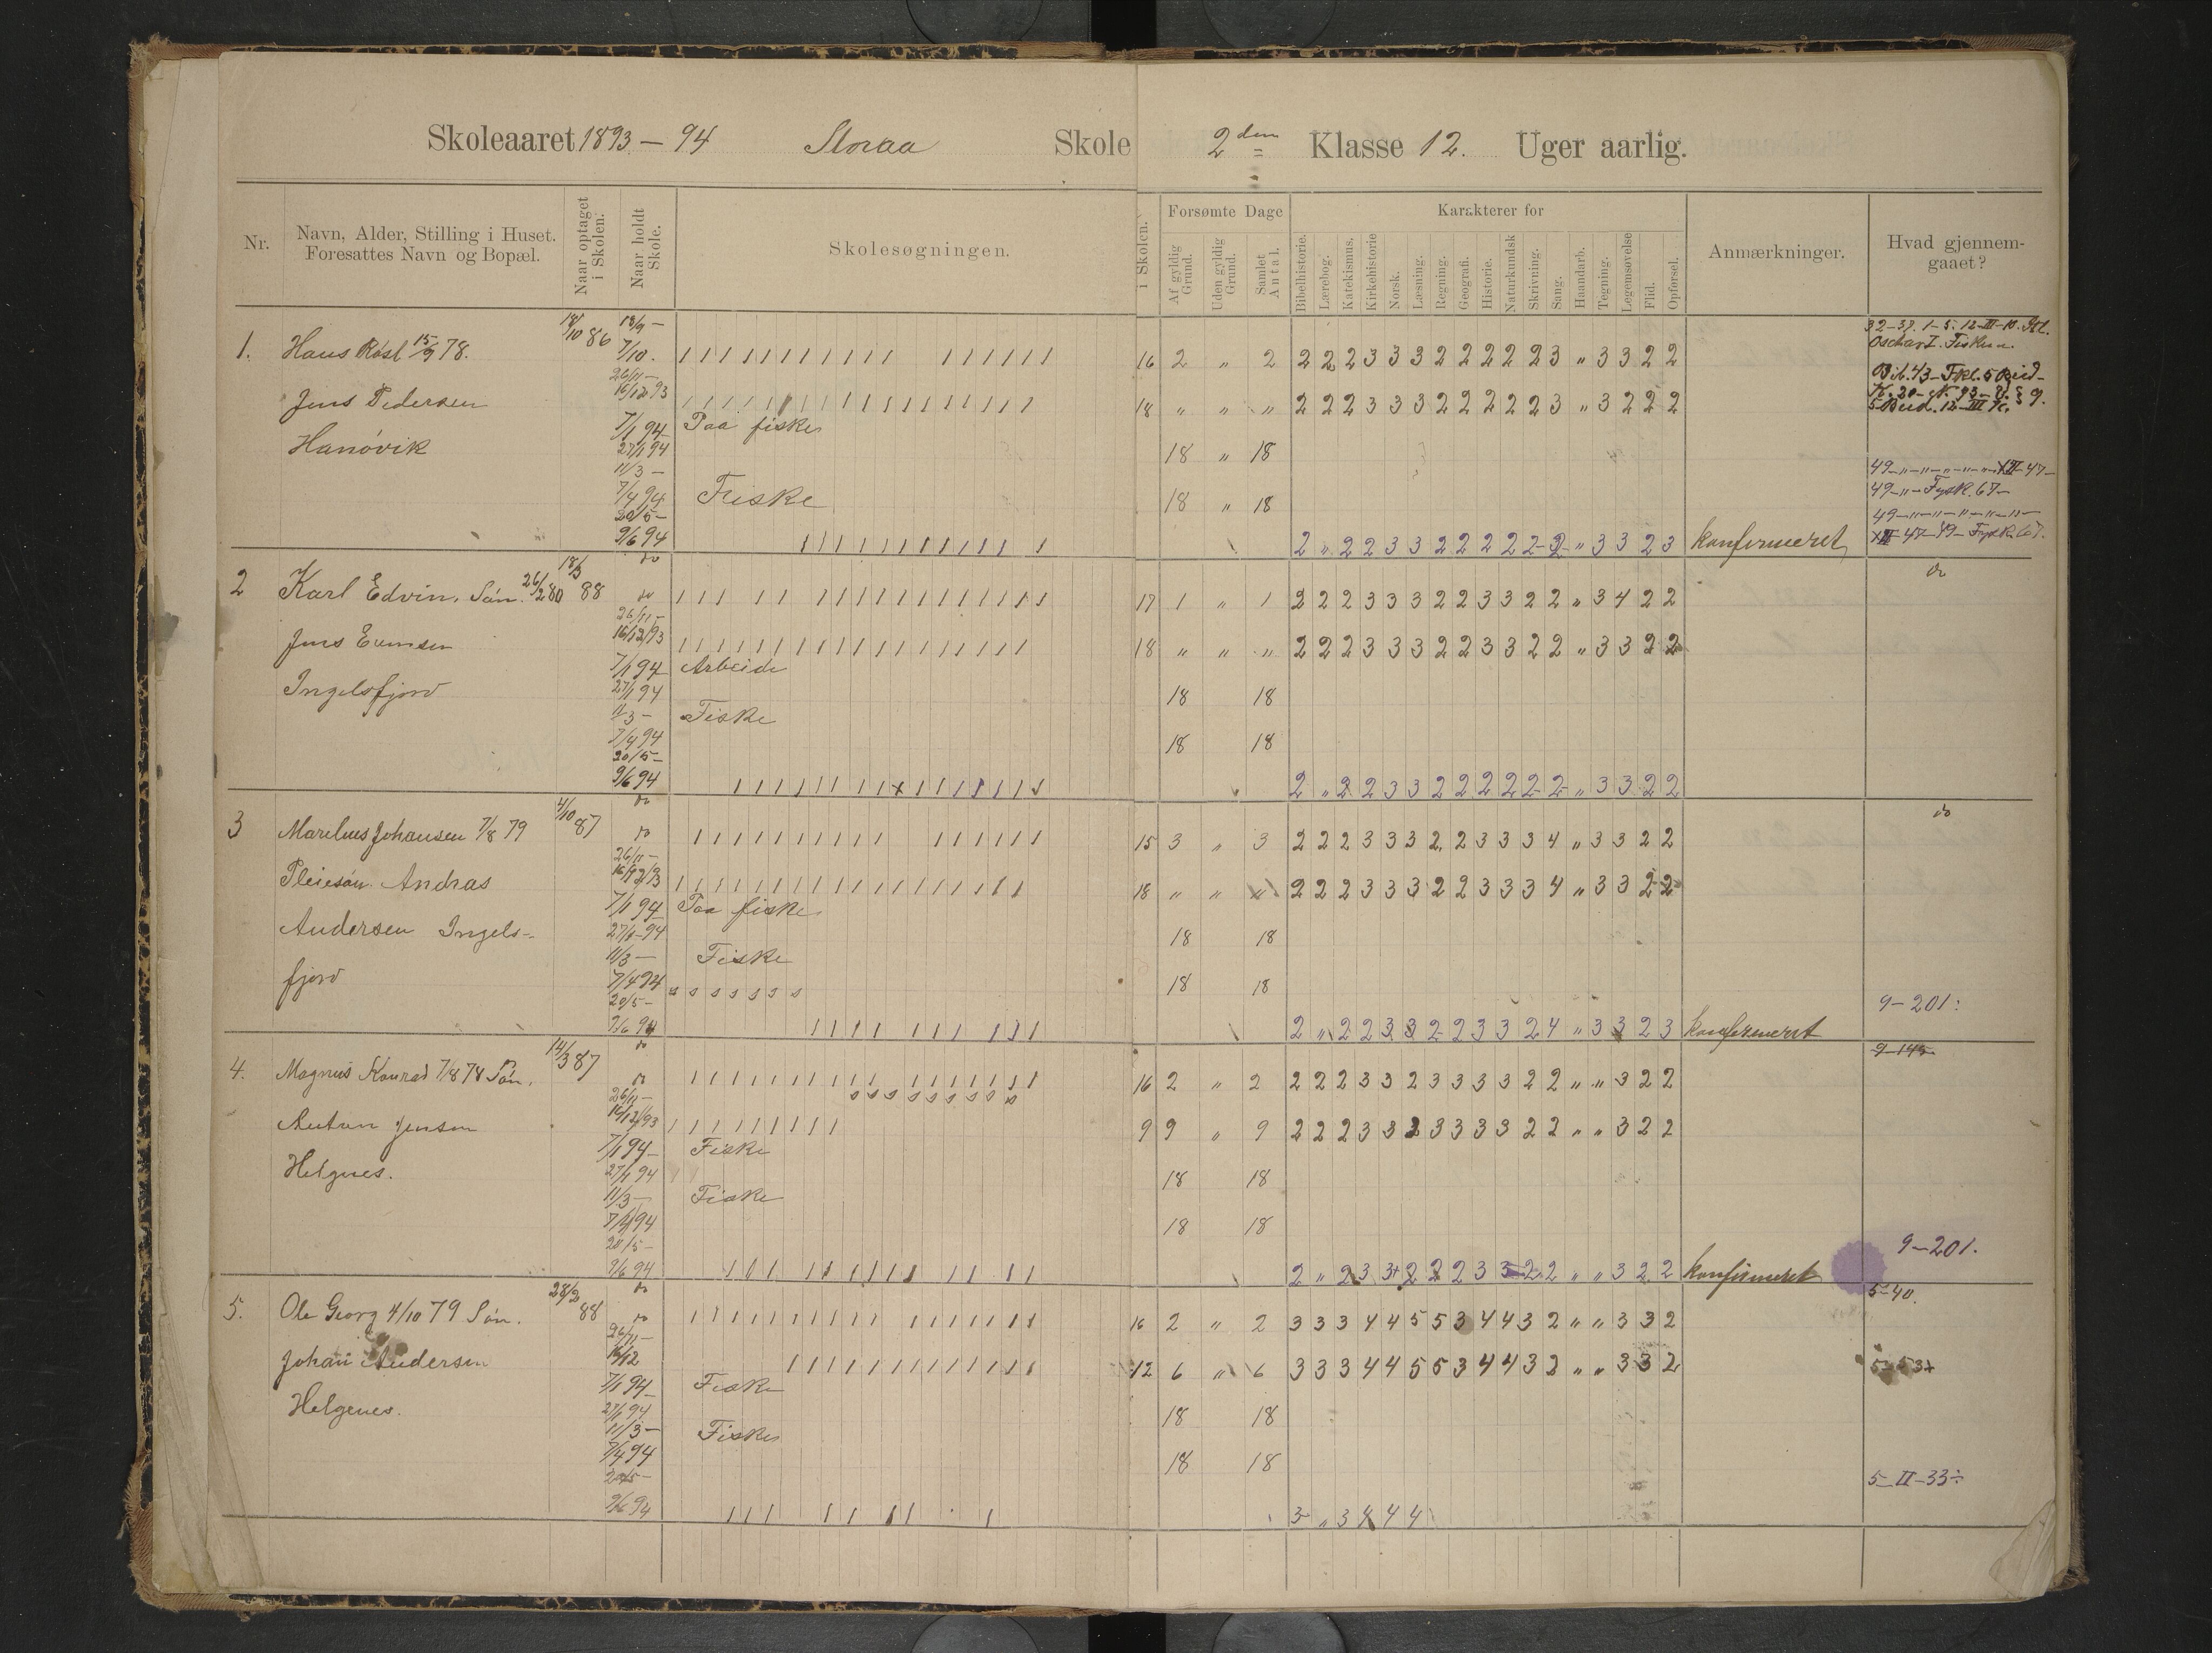 Skoleaaret 1893 – 94 Storaa Skole 2den Klasse 12. Uger aarlig.
Nr. Navn, Alder, Stilling i Huset. Foresattes Navn og Bopæl. Naar optaget i Skolen. Naar holdt Skole. Skolesøgningen. i Skolen. Forsømte Dage Karakterer for Anmærkninger. Hvad gjennemgaaet?
Af gyldig Grund. Uden gyldig Grund. Samlet Antal. Bibelhistorie. Lærebog. Katekismus. Kirkehistorie Norsk. Læsning. Regning. Geografi. Historie. Naturkundsk Skrivning. Sang. Haandarb. Tegning. Legemsøvelse Flid. Opførsel.
1. Hans 15/9 78. 18/10 86 18/9 – 7/10. 16 2 " 2 2 2 2 3 3 3 2 2 2 2 2 3 " 3 3 2 2
Jens Pedersen 26/11 – 16/12 93 18 " " " 2 2 2 3 3 3 2 2 2 2 2 3 " 3 2 2 2
7/1 94 Paa fiske
Hanøvik 27/1 94 18 " 18
11/3 –
7/4 94 Fiske 18 " 18
20/5 –
9/6 94 2 " 2 2 3 3 2 2 2 2 2 2 " 3 3 2 3 konfirmeret
49 – " – Fysk. 67 –
XII 47 – 49 – Fysk. 67.
2 Karl Edvin. Søn. 26/2 80 18/3 88 do do 17 1 " 1 2 2 2 3 3 3 2 2 3 3 2 2 " 3 4 2 2 do
Jens 26/11 – 16/12/93 18 " " " 2 2 2 3 3 3 2 2 3 3 2 2 " 3 3 2 2
7/1 94 Arbeide
Ingelsfjord 27/1 94 18 18
11/3 – Fiske
7/4 94 18 18
20/5 –
9/6 94 2 " 2 2 3 3 2 2 2 2 2 2 " 3 3 2 2
3 Johansen 7/8 79 4/10 87 do do 15 3 " 3 2 2 2 3 3 3 2 2 3 3 3 4 " 3 3 2 2 do
Pleiesøn. Andras 26/11 – 16/12/93 18 " " " 2 2 2 3 3 3 2 2 3 3 3 4 " 3 3 2 2
7/1 94 Paa fiske
Andersen Ingels- 27/1 – 94 18 18
11/3 – Fiske
fjord 7/4 94 s s s s s s s 18 18
20/5 – 9 – 201:
9/6 94 2 " 2 2 3 3 2 2 3 3 2 4 " 3 3 2 3 konfirmeret
4. Magnus Konrad 7/8 78 Søn. 14/3 87 do do 16 2 " 2 2 2 2 3 3 2 3 3 3 3 2 2 " " 3 2 2 9 – 145
Anton Jensen 26/11 – 16/12/93 9 9 " 9 2 2 2 3 3 2 3 3 3 3 2 2 " " 3 2 2
7/1 94 – Fiske
Helgnes. 27/1 94 18 18
11/3 – Fiske
7/4 94 18 18
20/5 – 9 – 201.
9/6 94 2 " 2 3 3+ 2 2 2 3 3 2 2 " " 3 2 2 konfirmeret
5. Ole Georg 4/10 79 Søn. 28/2 88 do do 16 2 " 2 3 3 3 4 4 5 5 3 4 4 3 2 " " 3 3 2 5 – 40.
Johan Andersen 26/11 – 16/12 12 6 " 6 3 3 3 4 4 5 5 3 4 4 3 2 " " 3 3 2 5 – 53+
7/1 94 – Fiske
Helgenes. 27/1 94 18 18
11/3 – Fiske
7/4 94 18 18
20/5 – 5 – II – 33÷
9/6 94 3 " 3 4 4 4